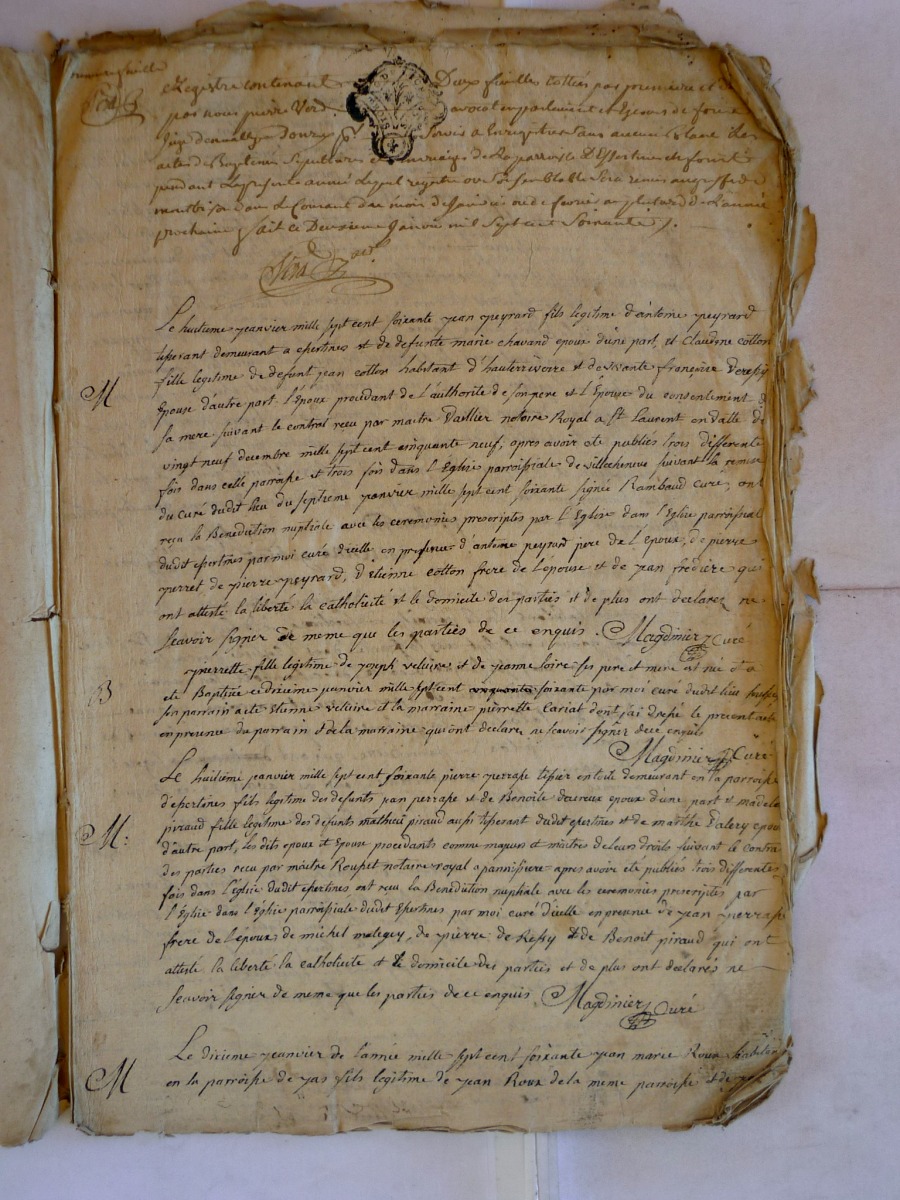 Registre contenant Deux feuilles cottées par premiere et
par nous pierre avocat en parlement et
Juge Servir a Enregistrer Sans aucun blanc les
actes de Baptemes Sepultures et mariages de La parroisse D'Essertines et
pendant La presente année Lequel registre ou Semblable Sera remis au greffe de
montbrison dans le Courant du mois de Janvier ou de fevrier au plus tard de L'année
prochaine fait ce Deuxieme Janvier mil Sept cent Soixante
Le huitieme jeanvier mille sept cent soixante jean peyrard fils legitime d'antoine peyrard
tisserant demeurant a esertines et de defunte marie chavand epoux d'une part, et Claudine cotton
M
fille legitime de defunt jean cotton habitant d'hauterivoire et de vivante françoise
Epouse d'autre part, l'Epoux procedant de l'authorité de son pere et l'Epouse du consentement de
sa mere suivant le contrat recu par maitre notaire Royal a St Laurent
vingt neuf decembre mille sept cent cinquante neuf, apres avoir eté publiés trois differente
fois dans cette parroisse et trois fois dans l'Eglise parroissiale de villecheneve suivant la remise
du curé dudit lieu du septieme janvier mille sept cent soixante signée Rambaud curé, ont
reçu la Benediction nuptiale avec les ceremonies prescriptes par l'Eglise dans l'Eglise parroissiale
dudit esertines par moi curé d'icelle en presence d'antoine peyrard pere de l'Epoux, de pierre
perret, de pierre peyrard, d'Etienne cotton frere de l'epouse et de jean qui
ont attesté la liberté la catholicité et le domicile des parties et de plus ont declarez ne
sçavoir signer de meme que les parties de ce enquis. Magdinier Curé
pierrette fille legitime de joseph velaire et de jeanne loire ses pere et mere est née
B
eté Baptisée ce dixieme janvier mille sept cent cinquante soixante par moi curé dudit lieu
son parrain a eté Etienne velaire et la marraine pierrette Cariat dont j'ai dressé le present acte
en presence du parrain et de la marraine qui ont declarez ne sçavoir signer de ce enquis
Magdinier Curé
Le huitieme janvier mille sept cent soixante pierre perrasse tissier en toile demeurant en la parroisse
d'esertines fils legitime des defunts jean perrasse et de Benoite epoux d'une part et
M:
piraud fille legitime des defunts mathieu piraud aussi tisserant dudit esertines et de marthe epouse
d'autre part, les dits epoux et Epouse procedants comme majeurs et maitres de leurs droits suivant le
des parties recu par maitre Roupet notaire royal a pannissiere apres avoir eté publiés trois differentes
fois dans l'Eglise dudit esertines ont reçu la Benediction nuptiale avec les ceremonies prescriptes par
l'Eglise dans l'Eglise parroissiale dudit Esertines par moi curé d'icelle en presence de jean perrasse
frere de l'époux, de michel de pierre de Ressy et de Benoit piraud qui ont
attesté la liberté la catholicité et le domicile des parties et de plus ont declarés ne
sçavoir signer de meme que les parties de ce enquis. Magdinier Curé
Le dixieme jeanvier de l'année mille sept cent soixante jean marie Roux
M
en la parroisse de jas fils legitime de jean Roux de la meme parroisse et de